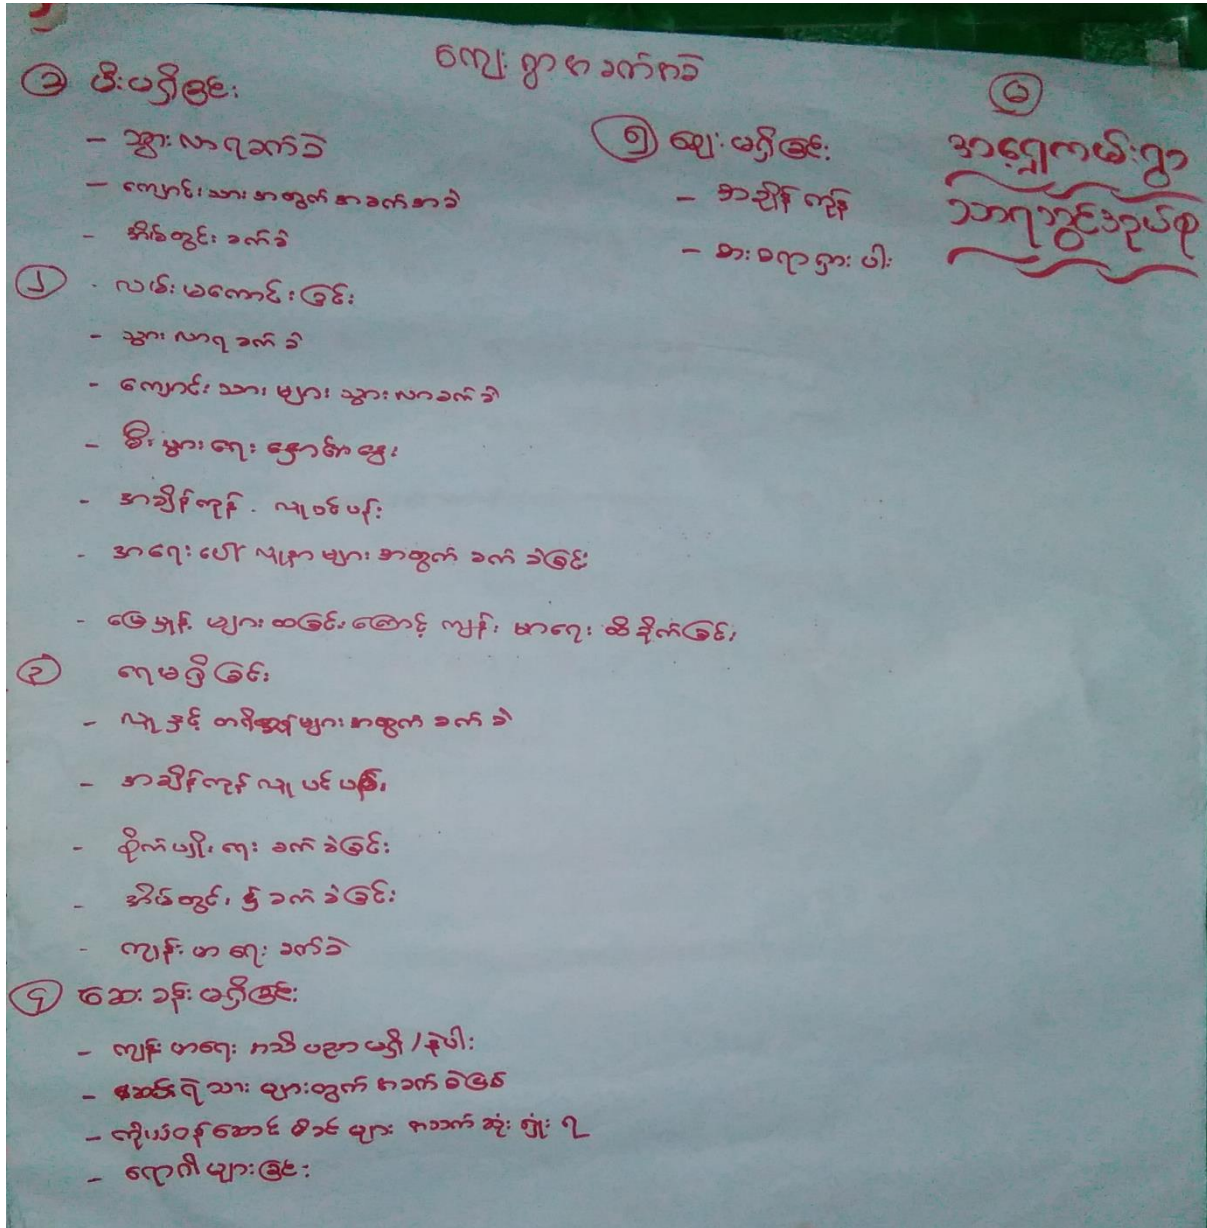 ကျေးရွာအခက်အခဲ
၃ မီးမရှိခြင်း
- သွားလာရခက်ခဲ
- ကျောင်းသားအတွက်အခက်အခဲ
- အိမ်တွင်းခက်ခဲ
၁ . လမ်းမကောင်းခြင်း
- သွားလာရခက်ခဲ
- ကျောင်းသားများသွားလာခက်ခဲ
- စီးပွားရေးနှောင့်နှေး
- အချိန်ကုန် . လူပင်ပန်း
- အရေးပေါ်လူနာများအတွက်ခက်ခဲခြင်း
- မြေမှုန့်များထခြင်းကြောင့်ကျန်းမာရေးထိခိုက်ခြင်း
၂ ရေမရှိခြင်း
- လူနှင့်တရိစ္ဆာန်များအတွက်ခက်ခဲ
- အချိန်ကုန်လူပင်ပန်း
- စိုက်ပျိုးရေးခက်ခဲခြင်း
- အိမ်တွင်း၌ခက်ခဲခြင်း
- ကျန်းမာရေးခက်ခဲ
၄ ဆေးခန်းမရှိခြင်း
- ကျန်းမာရေးအသိပညာမရှိ/နဲပါး
- ဆင်းရဲသားများတွက်အခက်ခဲဖြစ်
- ကိုယ်ဝန်ဆောင်မိခင်များအသက်ဆုံးရှုံးရ
- ရောဂါများခြင်း
၅ ဈေးမရှိခြင်း
- အချိန်ကုန်
- စားစရာရှားပါး
၆
အရှေ့ကမ်းရွာ
သာရဘွင်ဒဉယ်စု